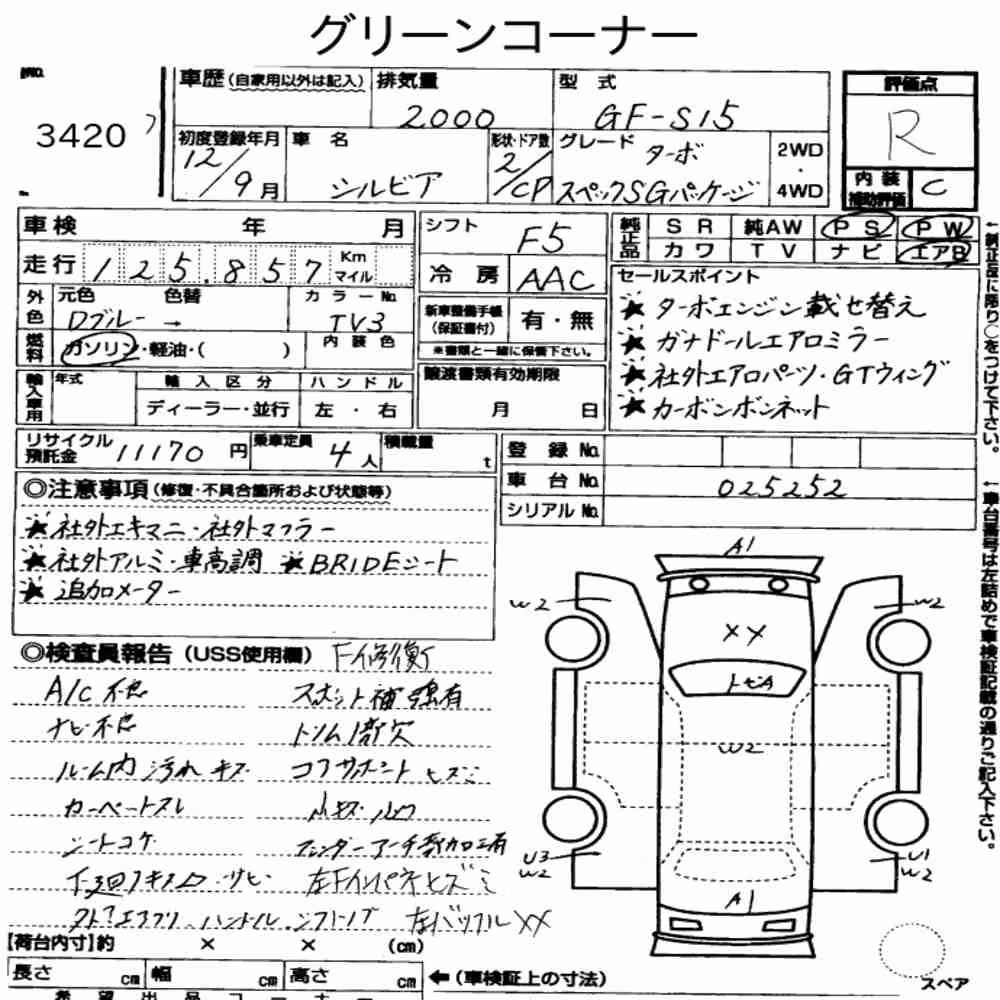 グリーンコーナー
3420
車歴 (自家用以外は記入) 排気量 2000 型式 GF-S15 評価点 R
初度登録年月 12/9月 車名 シルビア 形状・ドア数 2/CP グレード ターボ スペックSGパッケージ 2WD・4WD
内装補助評価 C
車検 年 月 シフト F5 純正品 SR 純AW PS PW
カワ TV ナビ エアB
走行 125,857 Km マイル 冷房 AAC
外色 元色 Dブルー → 色替 カラーNo. TV3 内装色
燃料 ガソリン・軽油・( )
新車整備手帳(保証書付) 有・無
※書類と一緒に保管下さい。
セールスポイント
★ ターボエンジン載せ替え
★ ガナドールエアロミラー
★ 社外エアロパーツ・GTウィング
★ カーボンボンネット
輸入車用 年式 輸入区分 ハンドル
ディーラー・並行 左・右
譲渡書類有効期限
月 日
リサイクル預託金 11170円 乗車定員 4人 積載量 t
登録No.
車台No. 025252
シリアルNo.
◎注意事項 (修復・不具合箇所および状態等)
★ 社外エキマニ・社外マフラー
★ 社外アルミ・車高調 ★ BRIDEシート
★ 追加メーター
◎検査員報告 (USS使用欄) F修復
A/C不良 スポット補強有
ナビ不良 トリム1部欠
ルーム内汚れ キズ コアサポートヒズミ
カーペートスレ 小キズ
シートコゲ フェンダーアーチ部加工有
下廻 サビ 左Fインパネヒズミ
ハンドル
【荷台内寸】約 × × (cm)
長さ cm 幅 cm 高さ cm
←(車検証上の寸法)
希望出品コーナー
A1
W2
W2
XX
トビA
W2
U3
W2
U1
W2
A1
スペア
←純正品に限り○をつけて下さい。
←車台番号は左詰めで車検証記載の通りご記入下さい。